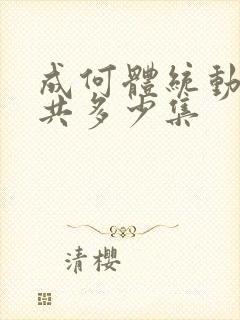 成何體統動
共多少集
清櫻